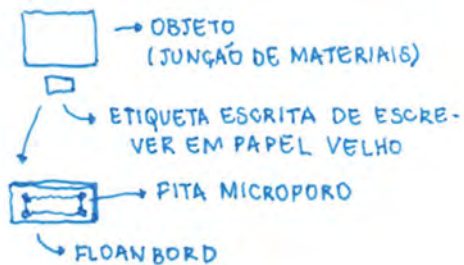 OBJETO
(JUNÇÃO DE MATERIAIS)
ETIQUETA ESCRITA DE ESCRE-
VER EM PAPEL VELHO
FITA MICROPORO
FLOANBORD